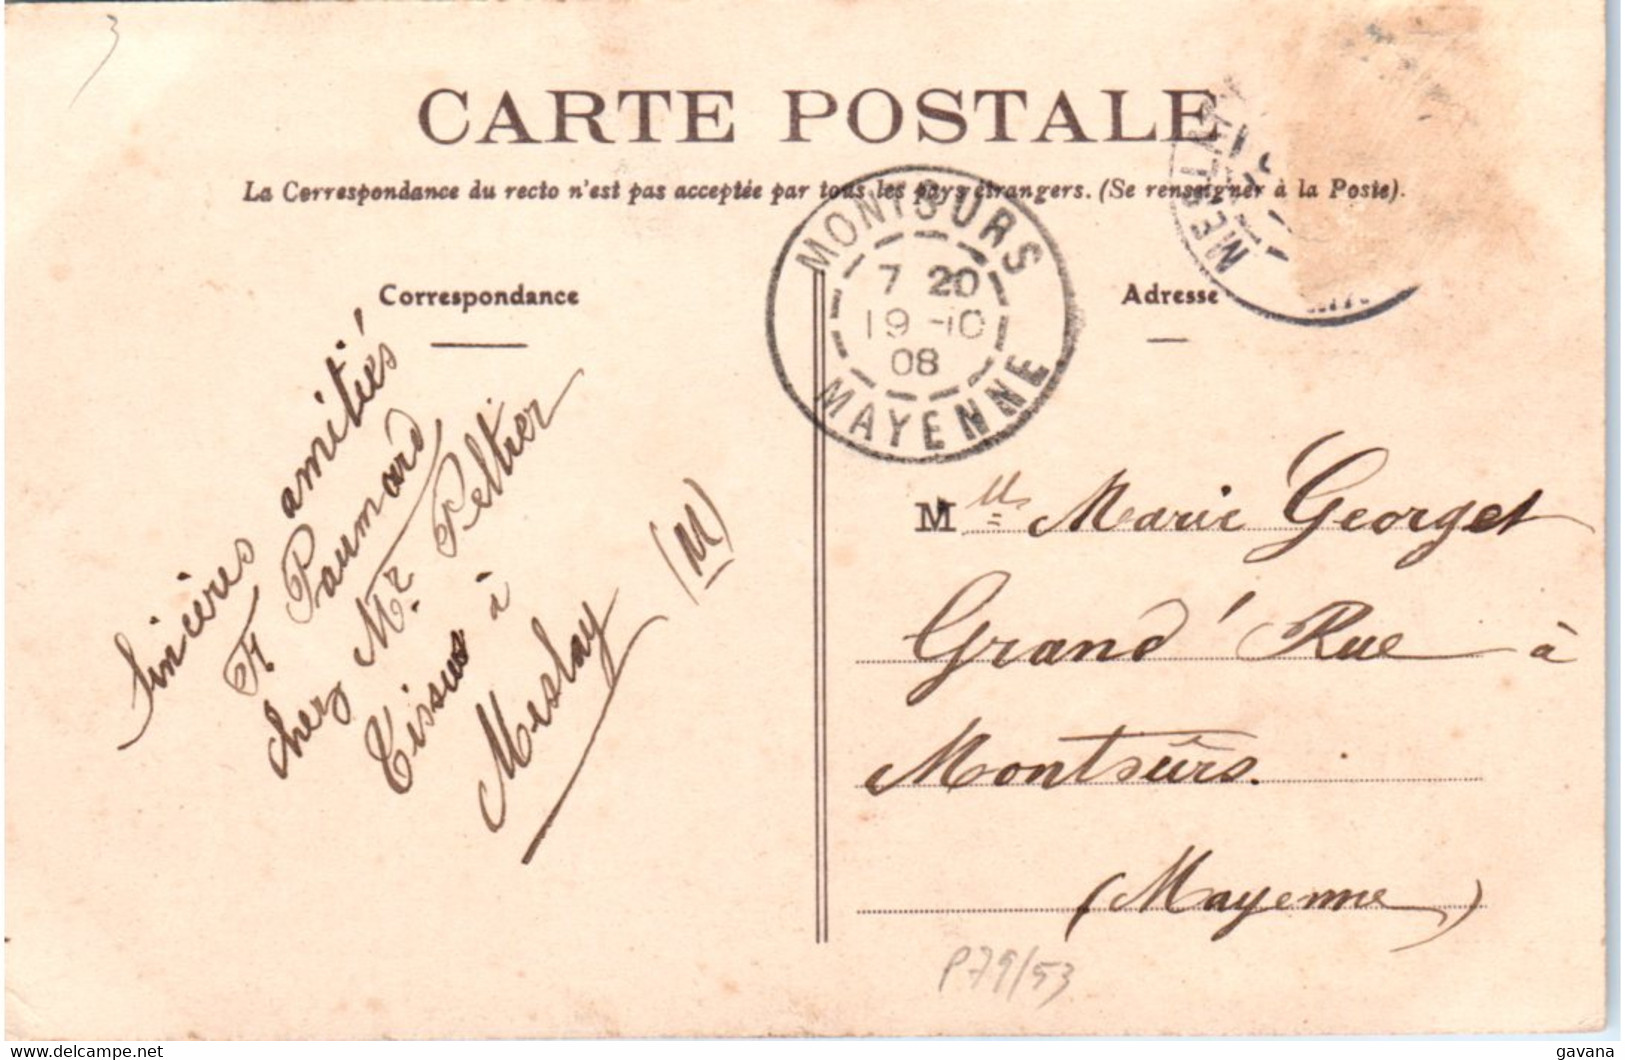 3
CARTE POSTALE
La Correspondance du recto n'est pas acceptée par tous les pays étrangers. (Se renseigner à la Poste).
MONTSURS
7 20
19-10
08
MAYENNE
Correspondance
Adresse
Sincères amitiés
Paumard
chez Mr. Peltier
Tissus à
Meslay (M)
Mlle Marie Georget
Grand' Rue à
Montsûrs.
(Mayenne)
P79/53
www.delcampe.net
gavana